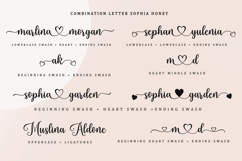 COMBINATION LETTER SOPHIA HONEY
marlina morgan
sephan yulenia
LOWERCASE SWASH + HEART + ENDING SWASH
LOWERCASE SWASH + HEART + ENDING SWASH
ak
m d
BEGINNING SWASH + ENDING SWASH
HEART MIDDLE SWASH
sophia garden
sophia garden
BEGINNING SWASH + HEART SWASH +ENDING SWASH
Mustina Aldone
m d
UPPERCASE + LIGATURES
BEGINNING HEART SWASH + ENDING SWASH